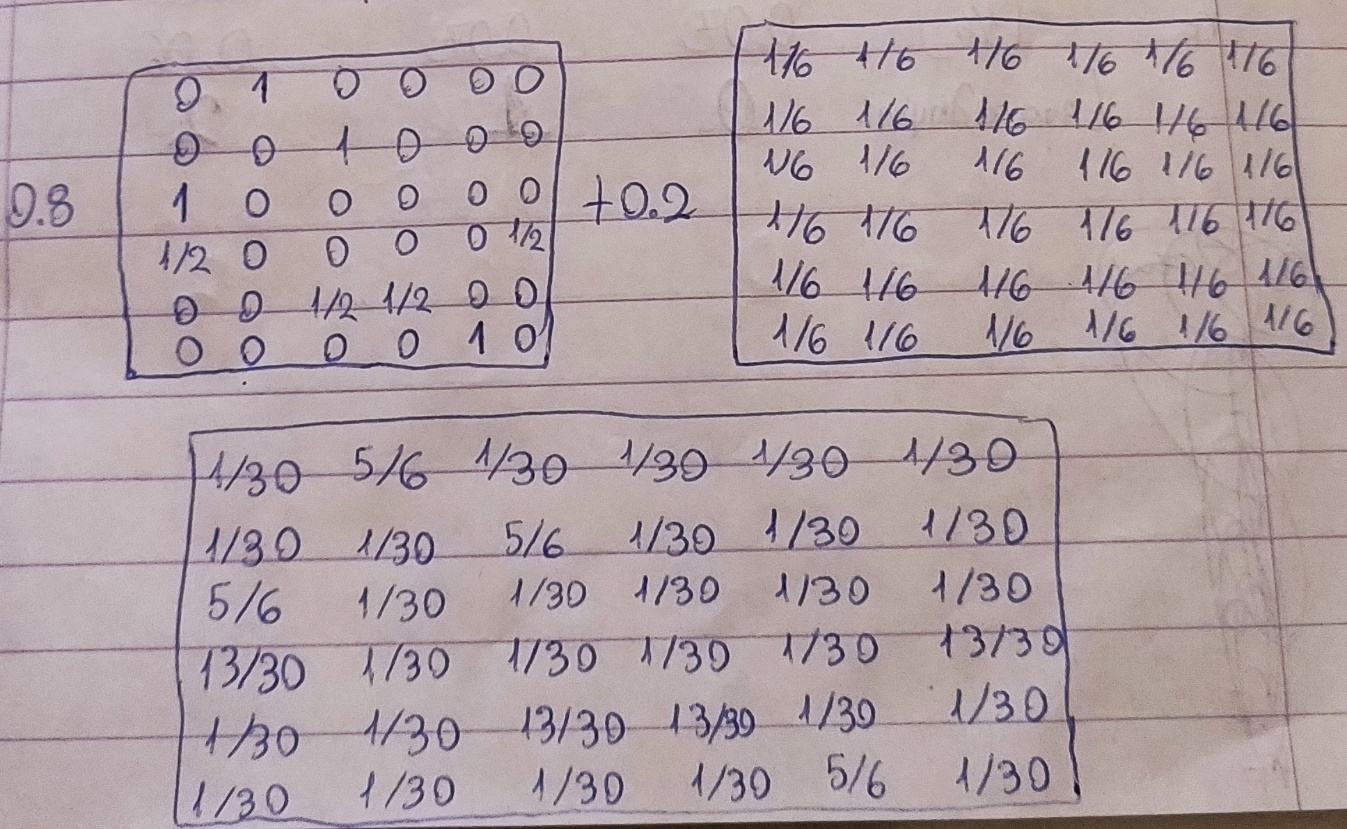 0 1 0 0 0 0 1/6 1/6 1/6 1/6 1/6 1/6
0 0 1 0 0 0 1/6 1/6 1/6 1/6 1/6 1/6
0.8 1 0 0 0 0 0 +0.2 1/6 1/6 1/6 1/6 1/6 1/6
1/2 0 0 0 0 1/2 1/6 1/6 1/6 1/6 1/6 1/6
0 0 1/2 1/2 0 0 1/6 1/6 1/6 1/6 1/6 1/6
0 0 0 0 1 0 1/6 1/6 1/6 1/6 1/6 1/6
1/30 5/6 1/30 1/30 1/30 1/30
1/30 1/30 5/6 1/30 1/30 1/30
5/6 1/30 1/30 1/30 1/30 1/30
13/30 1/30 1/30 1/30 1/30 13/30
1/30 1/30 13/30 13/30 1/30 1/30
1/30 1/30 1/30 1/30 5/6 1/30